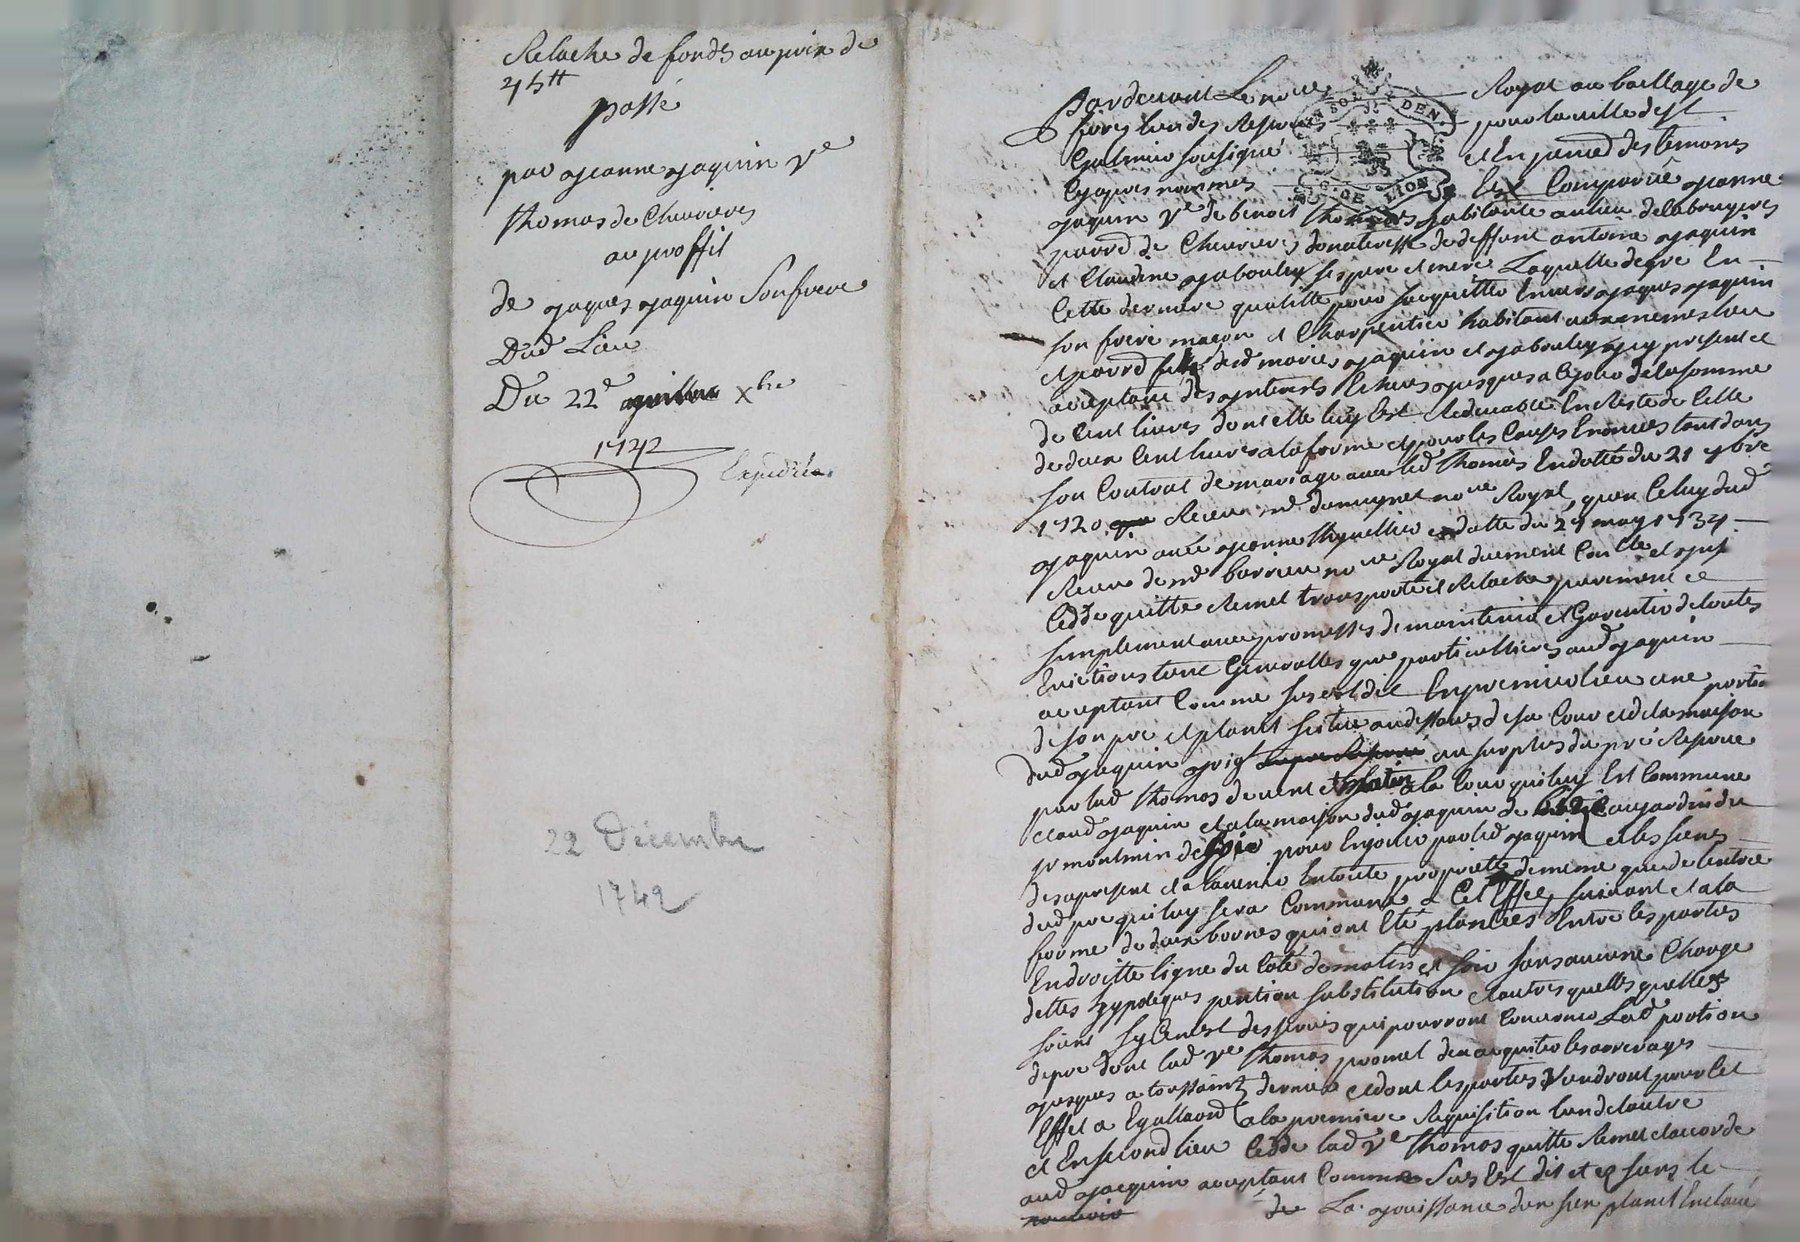 Relache de fonds au prix de
passé
par jeanne jaquin Ve
thomas de Chevrieres
au proffit
de jaques jaquin Son frere
Dud Lieu
Du 22e xbre
1742
Expediée
22 Décembre
1742
SOL DEN.
G. DE LION
Pardevant Le nore Royal au bailliage de
fores pour la ville de St
Galmier Soussigné et En presence des temoins
Cy apres nommés Est Comparue jeanne
jaquin Ve de benoit thomas habitante au lieu de la bruyeres
parr. de Chevrieres donataresse de deffunt antoine jaquin
et Claudine jabouley ses pere et mere Laquelle de gré En
Cette derniere qualitté pour sacquitter Envers jaques jaquin
son frere maçon et Charpentier habitant aux memes lieu
et parr. fils desd maries jaquin et jabouley icy present et
acceptant des interets Echeus jusques a Ce jour de la somme
de Cent livres dont elle luy Est Redevable En Reste de Celle
de deux Cent livres a la forme et pour les Causes Enoncées tant dans
son Contrat de mariage avec led thomas En datte du 21
1720 Receu me nore Royal, quen Celuy dud
jaquin avec jeanne En datte du may 1734
Receu de me nore Royal duement
Cedde quitte Remet transporte et Relache purement et
simplement avec promesses de maintenir et Garentir de toutes
Evictions tant Generalles que particullieres aud jaquin
acceptant Comme sus est dit En premier lieu une portion
de son pré et planit situé au dessous de sa Cour et de la maison
dud jaquin au surplus du pré Reservé
par lad thomas de vent et matin a la Cour qui luy Est Commune
et aud jaquin et a la maison dud jaquin de bize et au jardin du
sr montmin de soir pour En jouir par led jaquin et les siens
des a present et a l'avenir En toute proprieté de meme que de lentrée
dud pré qui luy sera Commune a Cet Effet, suivant et a la
forme de deux bornes qui ont Eté plantées Entre les parties
En droitte ligne du Coté de matin et soir sans aucune Charge
dettes hypoteques pention substitution et autres quelles quelles
soient sy Ce nest des servis qui pourront Concerner Lad portion
de pré dont lad Ve thomas promet den acquitter les arrerages
jusques a toussaint derniere et dont les parties viendront pour Cet
Effet a Egallaon a la premiere Requisition lun de lautre
et En second lieu Cedde lad Ve thomas quitte Remet et accorde
aud jaquin acceptant Comme Sus Est dit et
de La jouissance dun sien planit Enclavé